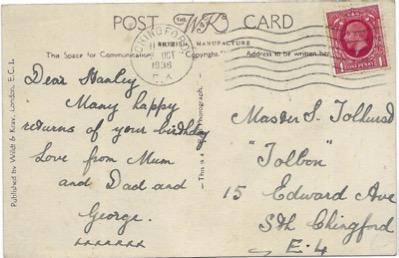 POST WK CARD
CHINGFORD
OCT
1936
E.4
BRITISH MANUFACTURE
The Space for Communication. Copyright. Address to be written here
POSTAGE
1 PENNY 1
Dear Stanley
Many happy
returns of your birthday
Love from Mum
and Dad and
George.
xxxxxxx
Master S. Tollurst
"Tolbon"
15 Edward Ave
Sth Chingford
E.4
Published by Wildt & Kray, London, E.C.1.
—This is a Photograph.